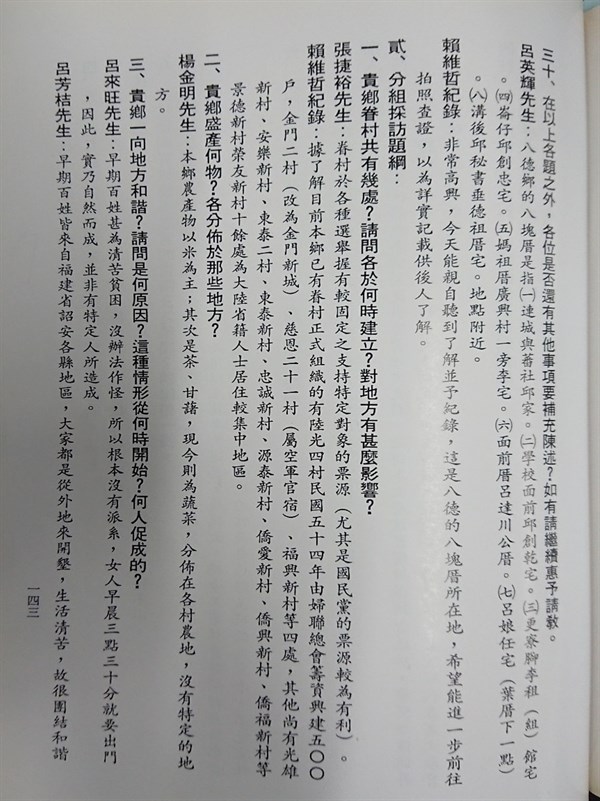 三十、在以上各題之外，各位是否還有其他事項要補充陳述？如有請繼續惠予請教。
呂英輝先生：八德鄉的八塊厝是指㈠連城與蕃社邱家。㈡學校面前邱創乾宅。㈢更寮腳李租（組）館宅
。㈣崙仔邱創忠宅。㈤媽祖厝廣興村一旁李宅。㈥面前厝呂達川公厝。㈦呂娘任宅（葉厝下一點）
。㈧溝後邱秘書垂德祖厝宅。地點附近。
賴維哲紀錄：非常高興，今天能親自聽到了解並予紀錄，這是八德的八塊厝所在地，希望能進一步前往
拍照查證，以為詳實記載供後人了解。
貳、分組採訪題綱：
一、貴鄉眷村共有幾處？請問各於何時建立？對地方有甚麼影響？
張捷裕先生：眷村於各種選舉握有較固定之支持特定對象的票源（尤其是國民黨的票源較為有利）。
賴維哲紀錄：據了解目前本鄉已有眷村正式組織的有陸光四村民國五十四年由婦聯總會籌資興建五〇〇
戶，金門二村（改為金門新城）、慈恩二十一村（屬空軍官宿）、福興新村等四處，其他尚有光雄
新村、安樂新村、東泰二村、東泰新村、忠誠新村、源泰新村、僑愛新村、僑興新村、僑福新村等
景德新村榮友新村十餘處為大陸省籍人士居住較集中地區。
二、貴鄉盛產何物？各分佈於那些地方？
楊金明先生：本鄉農產物以米為主；其次是茶、甘藷，現今則為蔬菜，分佈在各村農地，沒有特定的地
方。
三、貴鄉一向地方和諧？請問是何原因？這種情形從何時開始？何人促成的？
呂來旺先生：早期百姓甚為清苦貧困，沒辦法作怪，所以根本沒有派系，女人早晨三點三十分就要出門
，因此，實乃自然而成，並非有特定人所造成。
呂芳桔先生：早期百姓皆來自福建省詔安各縣地區，大家都是從外地來開墾，生活清苦，故很團結和諧
一四三